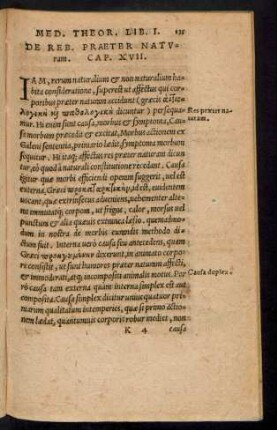 MED. THEOR. LIB. I.
DE REB. PRAETER NATV-
ram. CAP. XVII.
IAM, rerum naturalium & non naturalium ha-
bita consideratione, superest ut affectus qui cor-
poribus præter naturam accidunt (græci
dicuntur) persequa-
Res præter na-
turam.
mur. Hi enim sunt causa, morbus & symptoma, Cau-
sa morbum præcedit & excitat, Morbus actionem ex
Galeni sententia, primario lædit, symptoma morbum
sequitur. Hi itaq; affectus res præter naturam dicun-
tur, quòd ab optima constitutione recedant. Causa
igitur quæ morbis efficiendi operam suggerit, vel est
externa, Græci id est, euidentem
uocant, quæ extrinsecus adueniens, uehementer alte-
rat immutatq; corpus, ut frigus, calor, morsus uel
punctura & alia quæuis extrinseca læsio, quemadmo-
dum in nostra de morbis curandis methodo di-
ctum fuit. Interna uerò causa seu antecedens, quam
Græci dixerunt, in animato corpo-
re consistit, ut sunt humores præter naturam affecti,
& immoderati, atq; incompositi animalis motus. Por
Causa duplex.
rò causa tam externa quàm interna simplex est aut
composita. Causa simplex dicitur unius quatuor pri-
marum qualitatum intemperies, quæ si primò actio-
nem lædat, quantumuis corporis robur mediet, non
K 4 causa